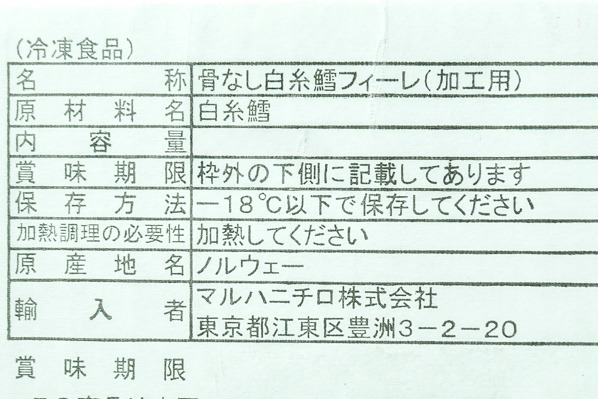 (冷凍食品)
名称 骨なし白糸鱈フィーレ(加工用)
原材料名 白糸鱈
内容量
賞味期限 枠外の下側に記載してあります
保存方法 －18℃以下で保存してください
加熱調理の必要性 加熱してください
原産地名 ノルウェー
輸入者 マルハニチロ株式会社
東京都江東区豊洲3－2－20
賞味期限